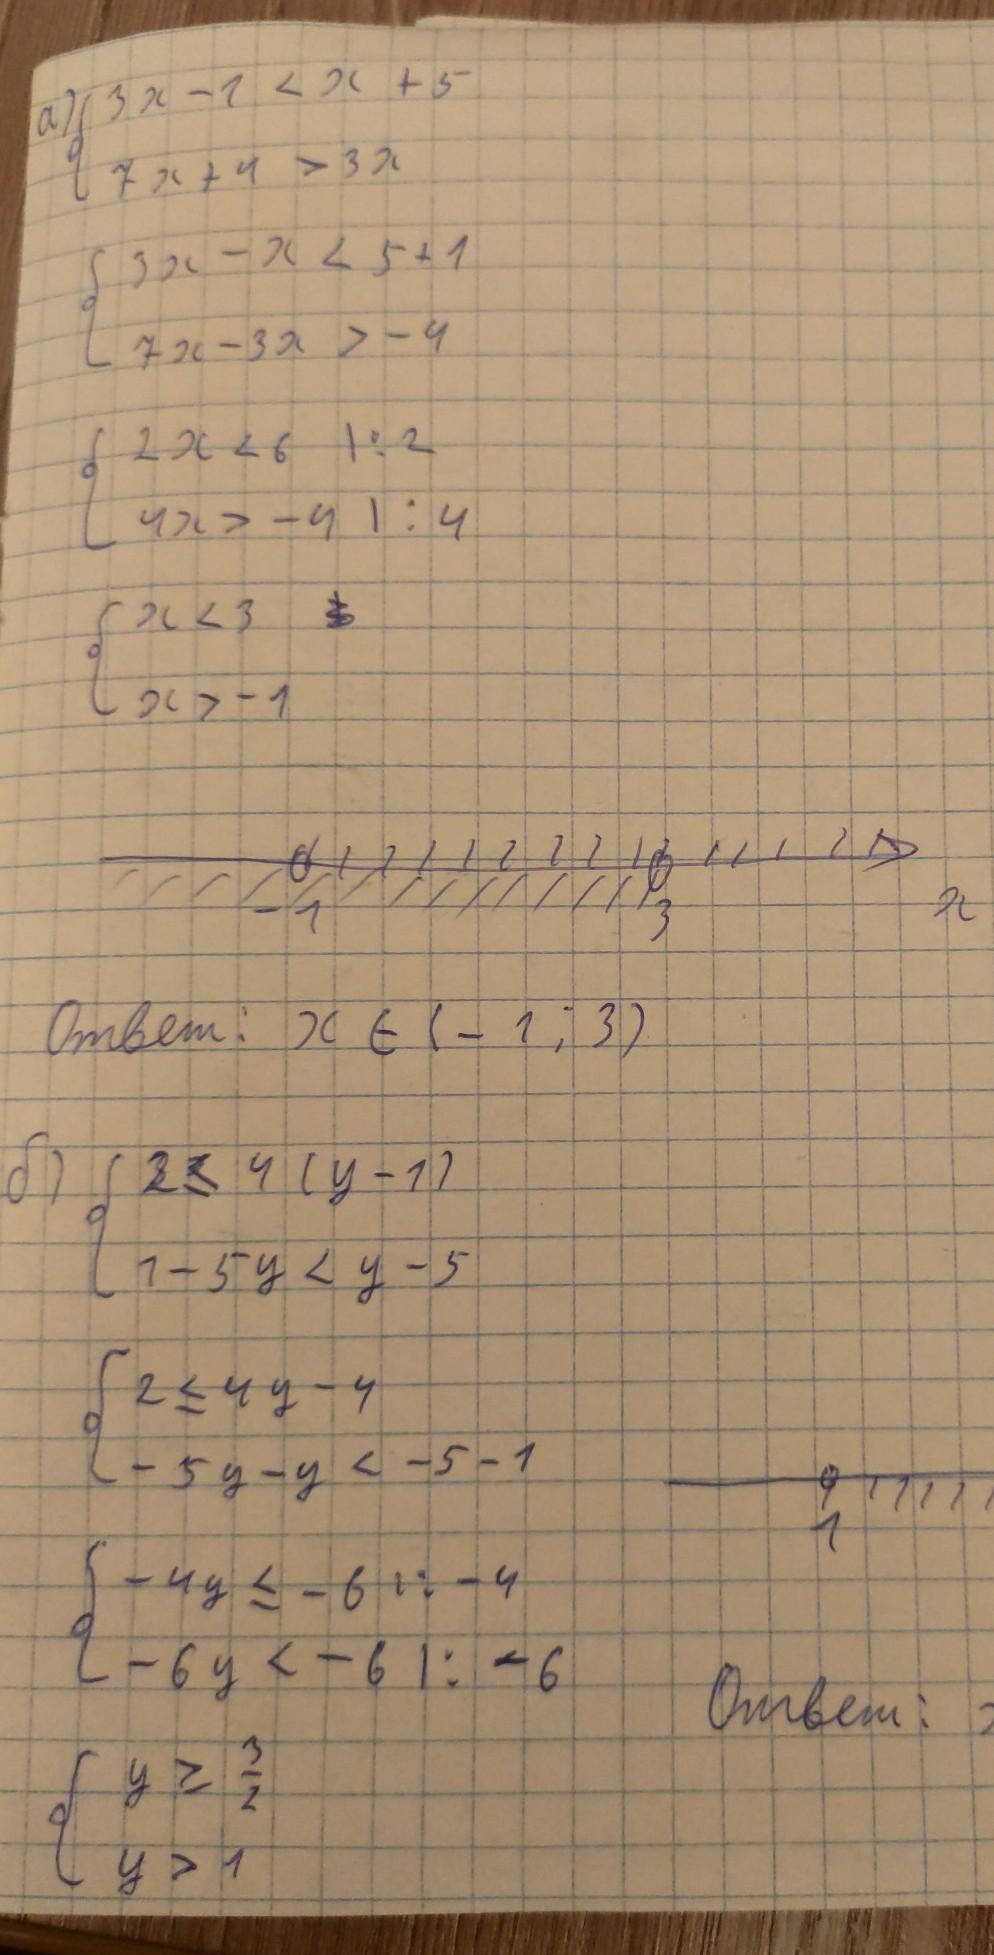 а) { 3x - 1 < x + 5
7x + 4 > 3x
{ 3x - x < 5 + 1
7x - 3x > -4
{ 2x < 6 |: 2
4x > -4 | : 4
{ x < 3
x > -1
-1 3 x
Ответ: x ∈ (-1; 3)
б) { 2 ≤ 4 (y - 1)
1 - 5y < y - 5
{ 2 ≤ 4y - 4
-5y - y < -5 - 1
1
{ -4y ≤ -6 |: -4
-6y < -6 |: -6
Ответ:
{ y ≥ 3/2
y > 1